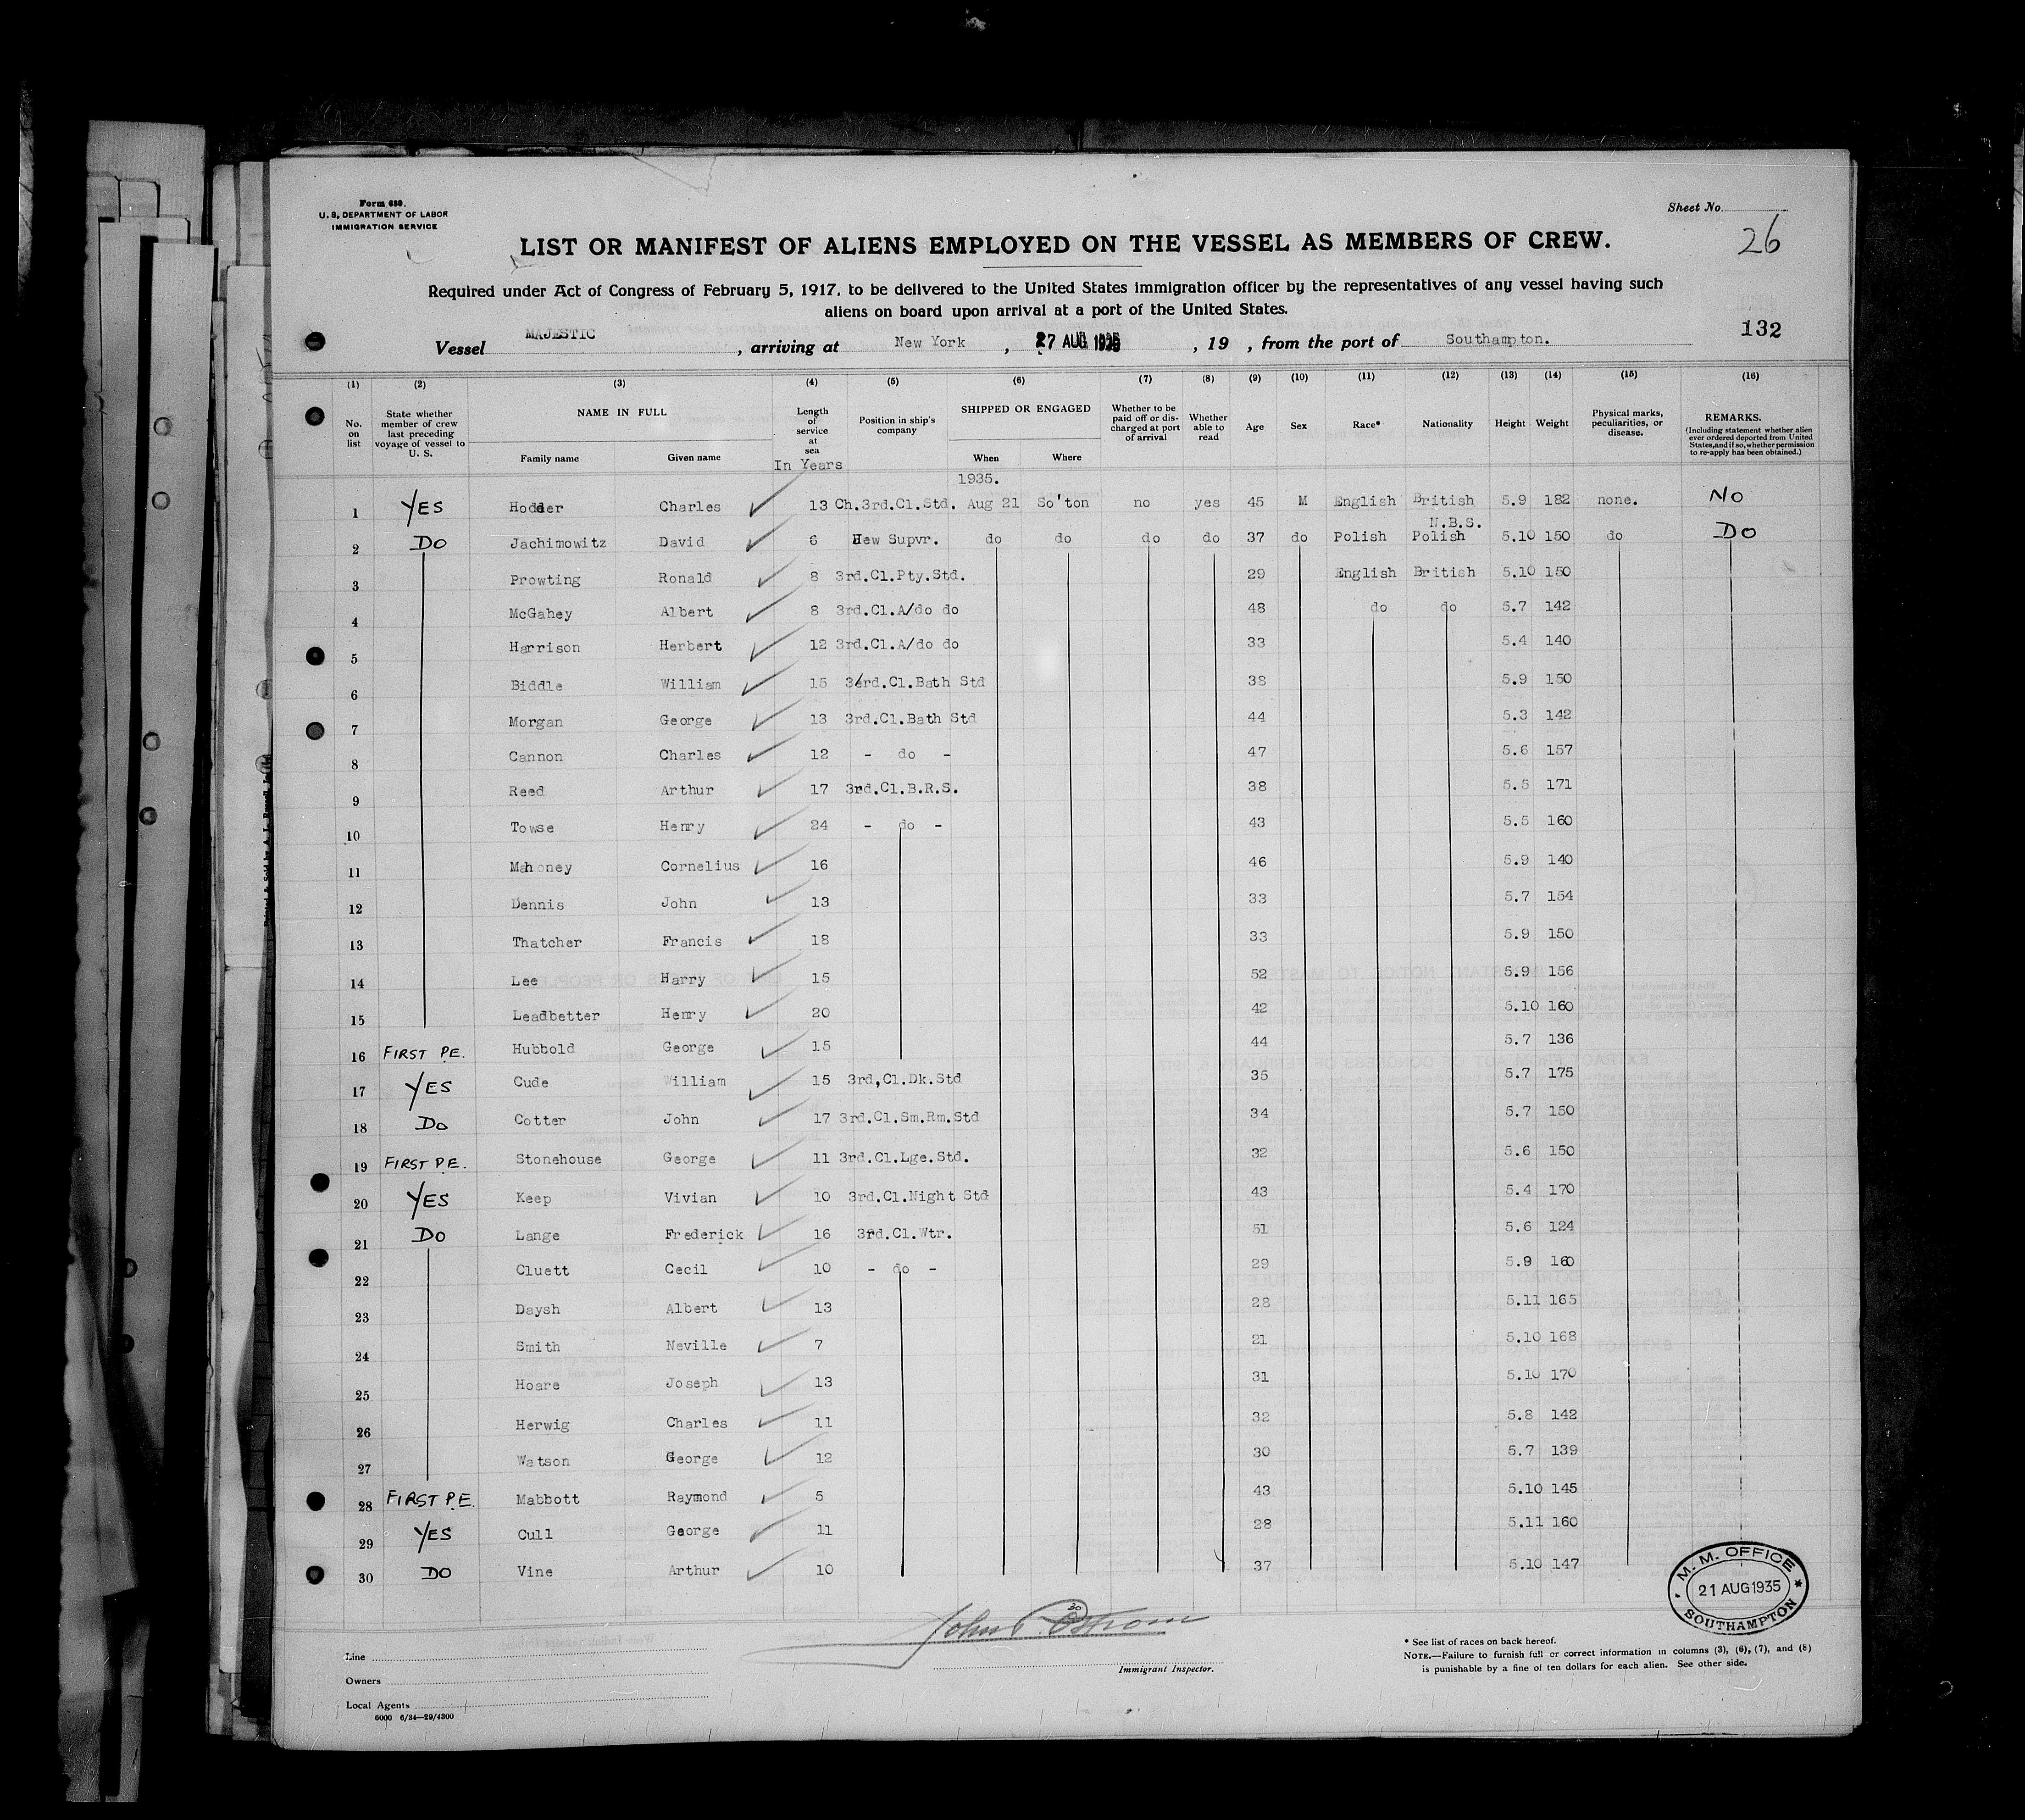 Form 680.
U. S. DEPARTMENT OF LABOR
IMMIGRATION SERVICE
Sheet No.
26
LIST OR MANIFEST OF ALIENS EMPLOYED ON THE VESSEL AS MEMBERS OF CREW.
Required under Act of Congress of February 5, 1917, to be delivered to the United States immigration officer by the representatives of any vessel having such
aliens on board upon arrival at a port of the United States.
132
Vessel MAJESTIC , arriving at New York , 27 AUG 1935 , 19 , from the port of Southampton.
(1) (2) (3) (4) (5) (6) (7) (8) (9) (10) (11) (12) (13) (14) (15) (16)
No. on list State whether member of crew last preceding voyage of vessel to U. S. NAME IN FULL Family name Given name Length of service at sea In Years Position in ship's company SHIPPED OR ENGAGED When Where Whether to be paid off or discharged at port of arrival Whether able to read Age Sex Race* Nationality Height Weight Physical marks, peculiarities, or disease. REMARKS. (Including statement whether alien ever ordered deported from United States, and if so, whether permission to re-apply has been obtained.)
1935.
1 YES Hodder Charles 13 Ch.3rd.Cl.Std. Aug 21 So'ton no yes 45 M English British 5.9 182 none. NO
N.B.S.
2 DO Jachimowitz David 6 Hew Supvr. do do do do 37 do Polish Polish 5.10 150 do DO
3 Prowting Ronald 8 3rd.Cl.Pty.Std. 29 English British 5.10 150
4 McGahey Albert 8 3rd.Cl.A/do do 48 do do 5.7 142
5 Harrison Herbert 12 3rd.Cl.A/do do 33 5.4 140
6 Biddle William 15 3rd.Cl.Bath Std 38 5.9 150
7 Morgan George 13 3rd.Cl.Bath Std 44 5.3 142
8 Cannon Charles 12 - do - 47 5.6 157
9 Reed Arthur 17 3rd.Cl.B.R.S. 38 5.5 171
10 Towse Henry 24 - do - 43 5.5 160
11 Mahoney Cornelius 16 46 5.9 140
12 Dennis John 13 33 5.7 154
13 Thatcher Francis 18 33 5.9 150
14 Lee Harry 15 52 5.9 156
15 Leadbetter Henry 20 42 5.10 160
16 FIRST P.E. Hubbold George 15 44 5.7 136
17 YES Cude William 15 3rd,Cl.Dk.Std 35 5.7 175
18 DO Cotter John 17 3rd.Cl.Sm.Rm.Std 34 5.7 150
19 FIRST P.E. Stonehouse George 11 3rd.Cl.Lge.Std. 32 5.6 150
20 YES Keep Vivian 10 3rd.Cl.Night Std 43 5.4 170
21 DO Lange Frederick 16 3rd.Cl.Wtr. 51 5.6 124
22 Cluett Cecil 10 - do - 29 5.9 160
23 Daysh Albert 13 28 5.11 165
24 Smith Neville 7 21 5.10 168
25 Hoare Joseph 13 31 5.10 170
26 Herwig Charles 11 32 5.8 142
27 Watson George 12 30 5.7 139
28 FIRST P.E. Mabbott Raymond 5 43 5.10 145
29 YES Cull George 11 28 5.11 160
30 DO Vine Arthur 10 37 5.10 147
M. M. OFFICE
21 AUG 1935
SOUTHAMPTON
30
John Ostrom
Immigrant Inspector.
Line
Owners
Local Agents
6000 6/34—29/4300
* See list of races on back hereof.
NOTE.—Failure to furnish full or correct information in columns (3), (6), (7), and (8)
is punishable by a fine of ten dollars for each alien. See other side.